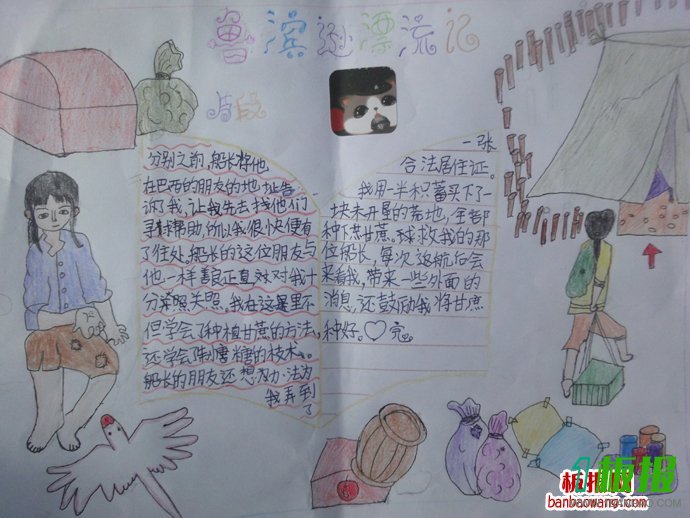 鲁滨逊漂流记
片段
分别之前,船长将他
在巴西的朋友的地址告
诉了我,让我先去找他们
寻求帮助,所以我很快便有
了住处,船长的这位朋友与
他一样善良正直,对我十
分关照,我在这里不
但学会了种植甘蔗的方法,
还学会了制糖的技术。
船长的朋友还想办法为
我弄到
了
一张
合法居住证。
我用一半积蓄买下了一
块未开垦的荒地,全部
种下甘蔗。拯救我的那
位船长,每次返航后会
来看我,带来一些外面的
消息,还鼓励我将甘蔗
种好。♡完。
板报网
banbaowang.com
板报